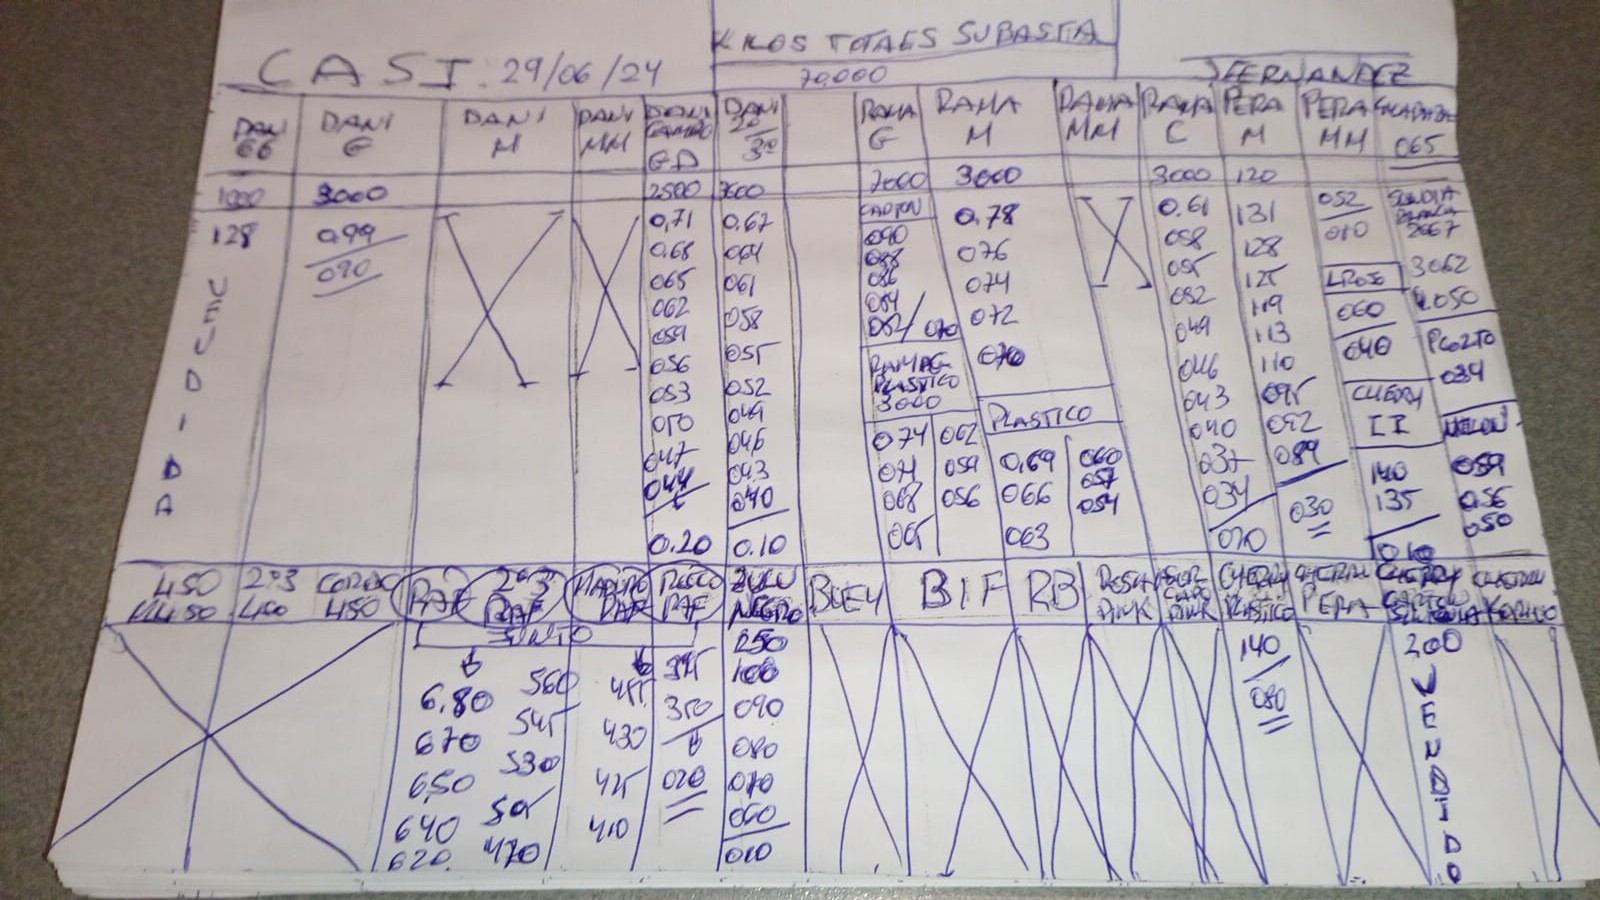 KILOS TOTAES SUBASTA
CASI. 29/06/24
70.000
JFERNANDEZ
DANI GG
DANI G
DANI M
DANI MM
DANI CAMBIO GD
DANI 2º 3º
RAMA G
RAMA M
RAMA MM
RAMA C
PERA M
PERA MM
065
1000 3000 2500 3000 7000 3000 3000 120
128
VEUDIDA
099
090
0,71
0.68
065
062
059
056
053
050
047
044
0.20
0.67
064
061
058
055
052
049
046
043
040
0.10
CARTON
090
088
086
084
082/ 070
RAMA G
PLASTICO
3000
074 062
071 059
068 056
065
0.78
076
074
072
070
PLASTICO
0,69 060
066 057
063 054
0.61
058
055
052
049
046
043
040
037
034
070
131
128
125
119
113
110
095
092
089
030
052
010
060
040
CHERRY
II
140
135
010
SANDIA
BLANCA
2667
3062
4050
034
MELON
059
056
050
450 2º3 450
450 400 450
RAF
2º3 RAF
RAF
RAF
NEGRO
BUEY
BIF
RB
ROSA PINK
PINK
CHERRY PLASTICO
CHERRY PERA
CHERRY CARTON
CHERRY
6,80
670
650
640
620
560
545
530
505
470
455
430
425
410
395
350
020
250
100
090
080
070
060
010
140
080
200
VENDIDO